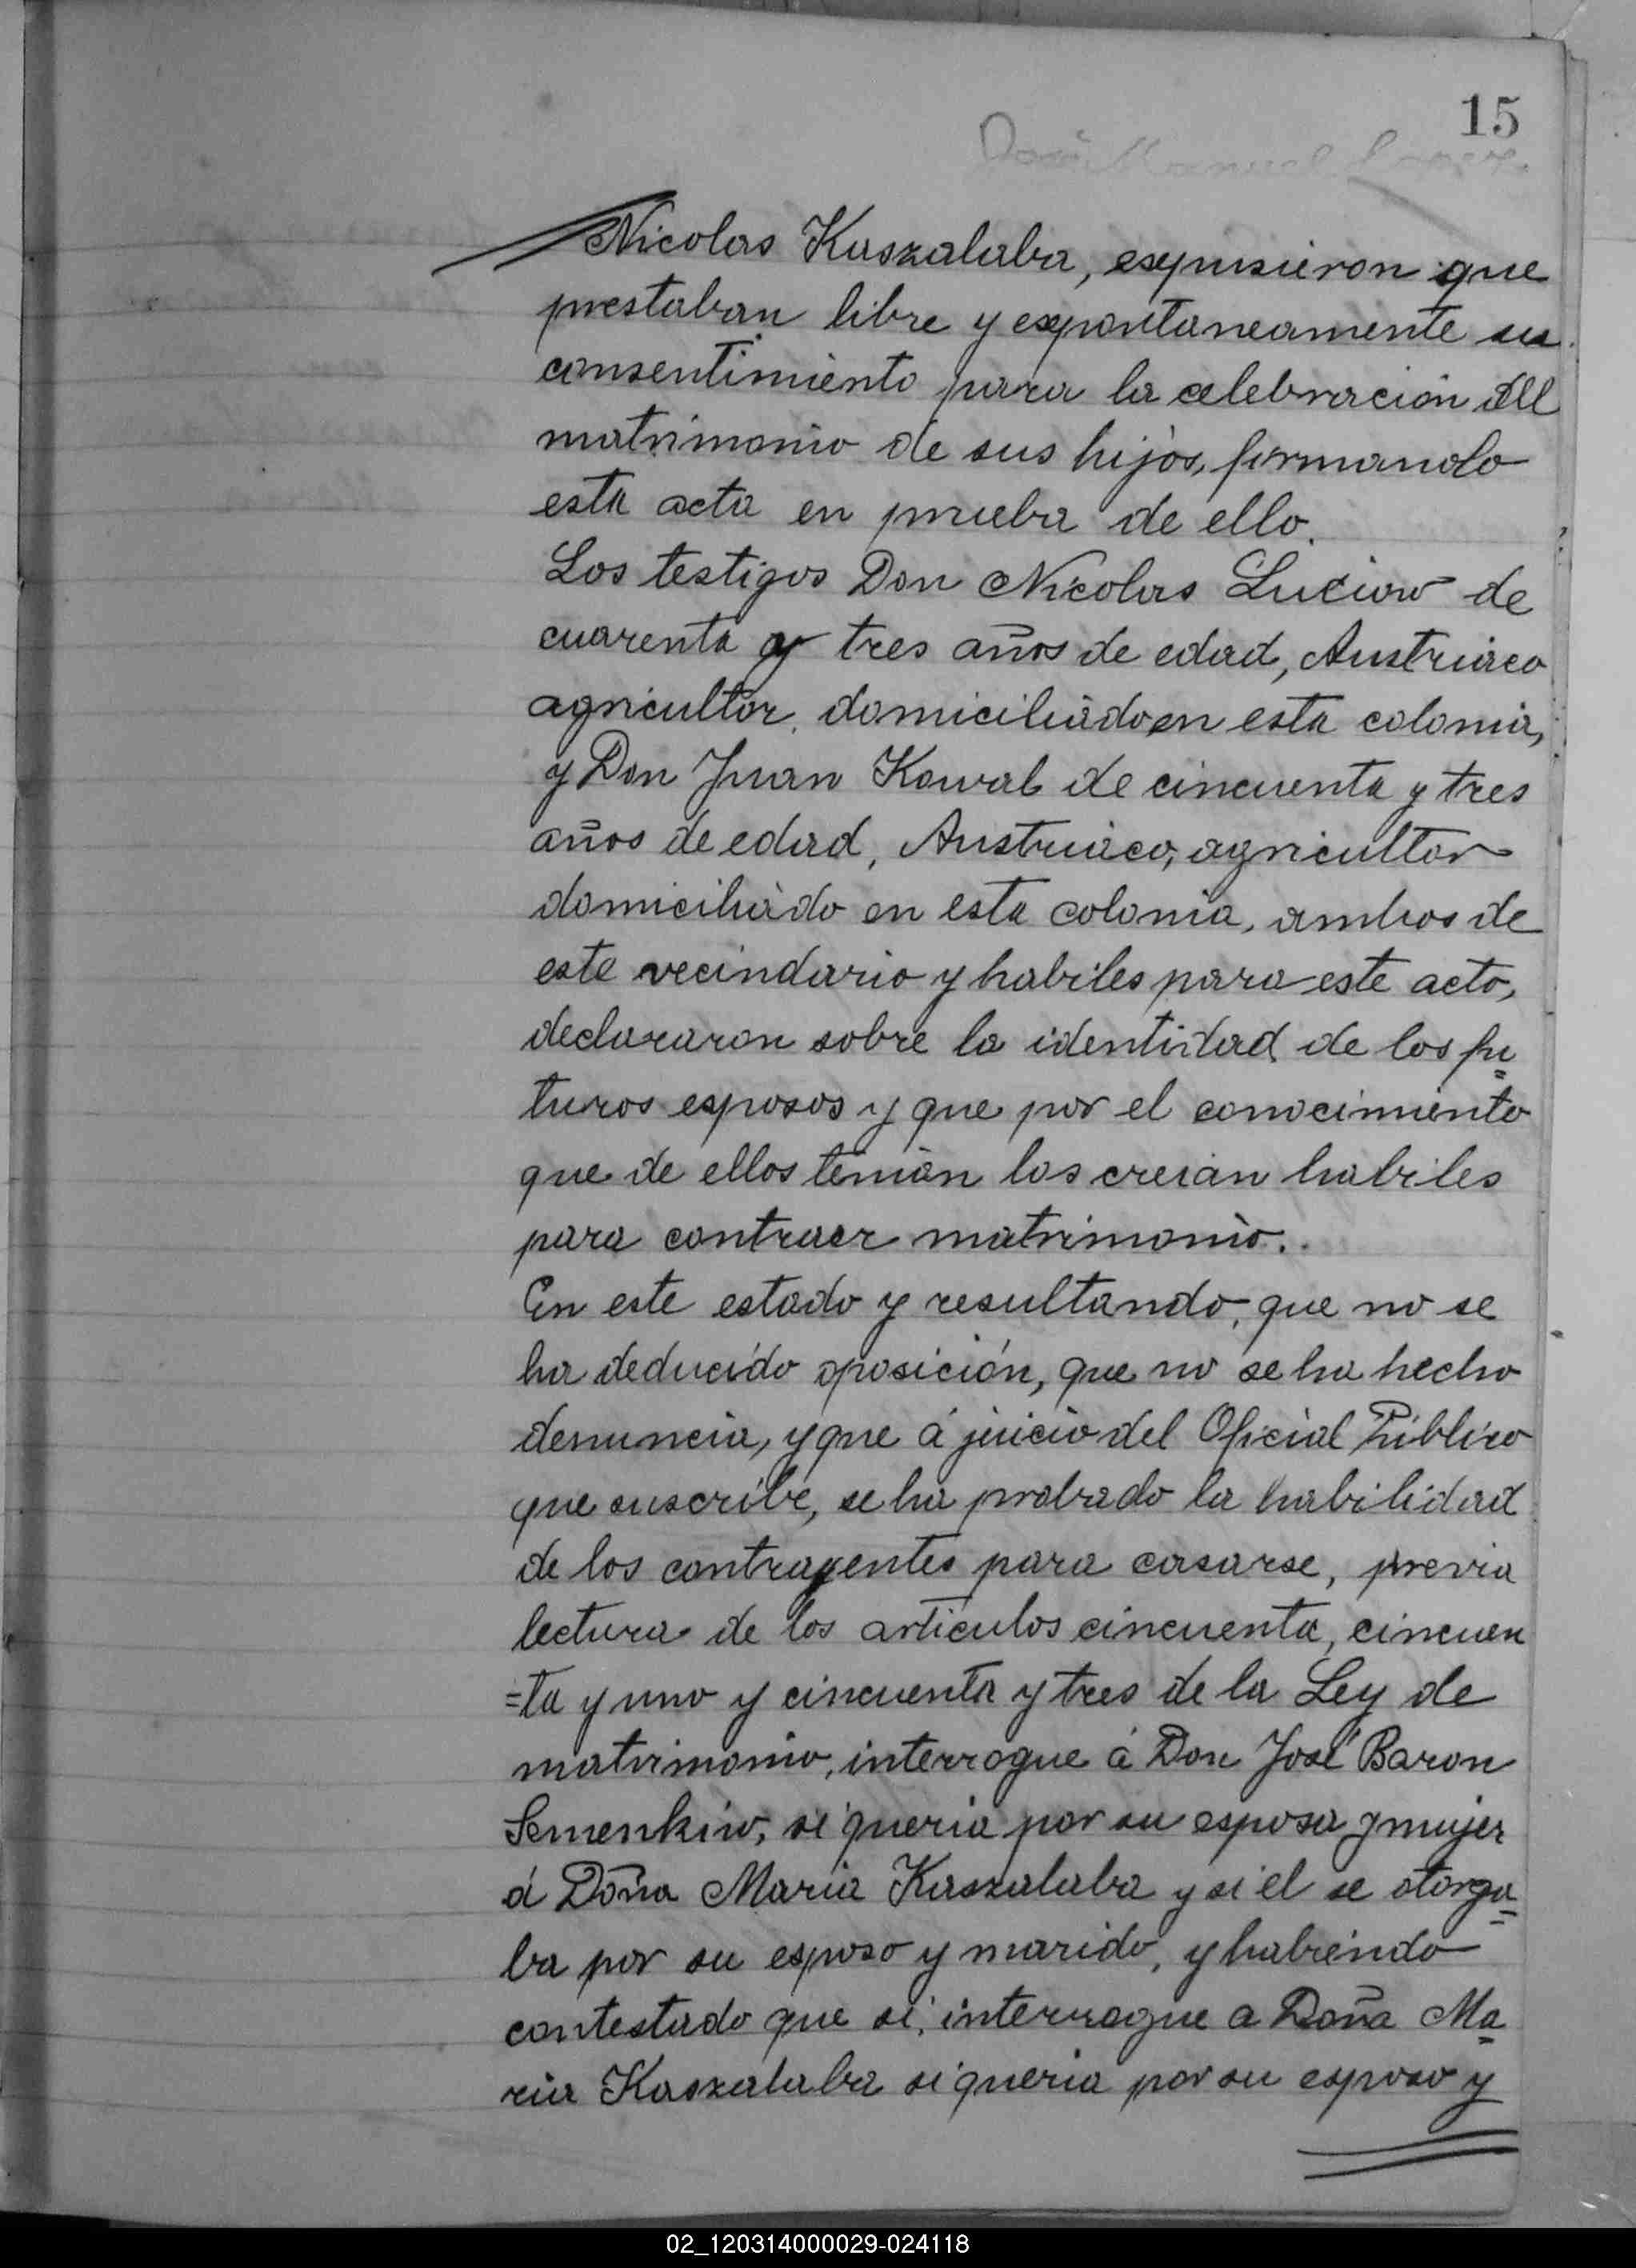 15
Nicolas Kaszalaba, expusieron que
prestaban libre y expontaneamente su
consentimiento para la celebracion del
matrimonio de sus hijos, firmando
esta acta en prueba de ello.
Los testigos Don Nicolas Luciow de
cuarenta y tres años de edad, Austriaco
agricultor, domiciliado en esta colonia,
y Don Juan Kowal de cincuenta y tres
años de edad, Austriaco, agricultor
domiciliado en esta colonia, ambos de
este vecindario y habiles para este acto,
declararon sobre la identidad de los fu
turos esposos y que por el conocimiento
que de ellos tenian los creian habiles
para contraer matrimonio.
En este estado y resultando, que no se
ha deducido oposición, que no se ha hecho
denuncia, y que á juicio del Oficial Público
que suscribe, se ha probado la habilidad
de los contrayentes para casarse, previa
lectura de los articulos cincuenta, cincuen
=ta y uno y cincuenta y tres de la Ley de
matrimonio, interrogue á Don José Baron
Semenkiw, si queria por su esposa y mujer
á Doña Maria Kaszalaba y si el se otorga
ba por su esposo y marido, y habiendo
contestado que si, interrogue a Doña Ma
ria Kaszalaba si queria por su esposo y
02_120314000029-024118